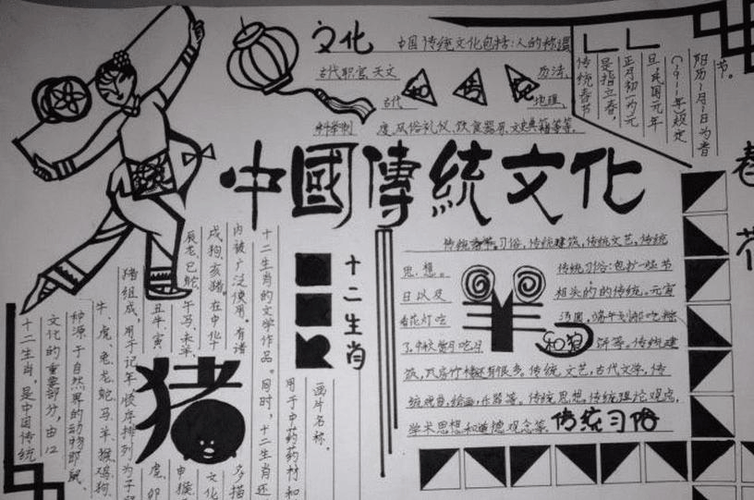 文化
中国传统文化包括:人的称谓
古代职官,天文
历法,
古代
地理,
科举制
度,风俗礼仪,饮食器用,文史典籍等等.
节。
阳历1月1日为春
(1911年)规定
旦,民国元年
正月初一为元
是指立春,
传统春节
中國傳統文化
春
花
十二生肖
传统春节习俗,传统建筑,传统文艺,传统
思想。
传统习俗:包括一些节
日以及
相关的的传统.元宵
看花灯吃
汤圆,端午划船吃粽
了,中秋赏月吃月
和狗
饼等。传统建
筑
传统,文艺,古代文学,传
统戏曲,绘画,乐器等。传统思想,传统理论观点,
学术思想和道德观念等。
传统习俗
十二生肖,是中国传统
文化的重要部分,由12
种源于自然界的动物即鼠、
牛、虎、兔、龙、蛇、马、羊、猴、鸡、狗、
猪组成,用于记年,顺序排列为子鼠
丑牛、寅
虎、卯
辰龙、巳蛇、
午马、未羊
申猴
戌狗、亥猪。在中华
文化
内被广泛使用。有诸
多描
十二生肖的文学作品。同时,十二生肖还
用于中药药材和
画片名称。
猪